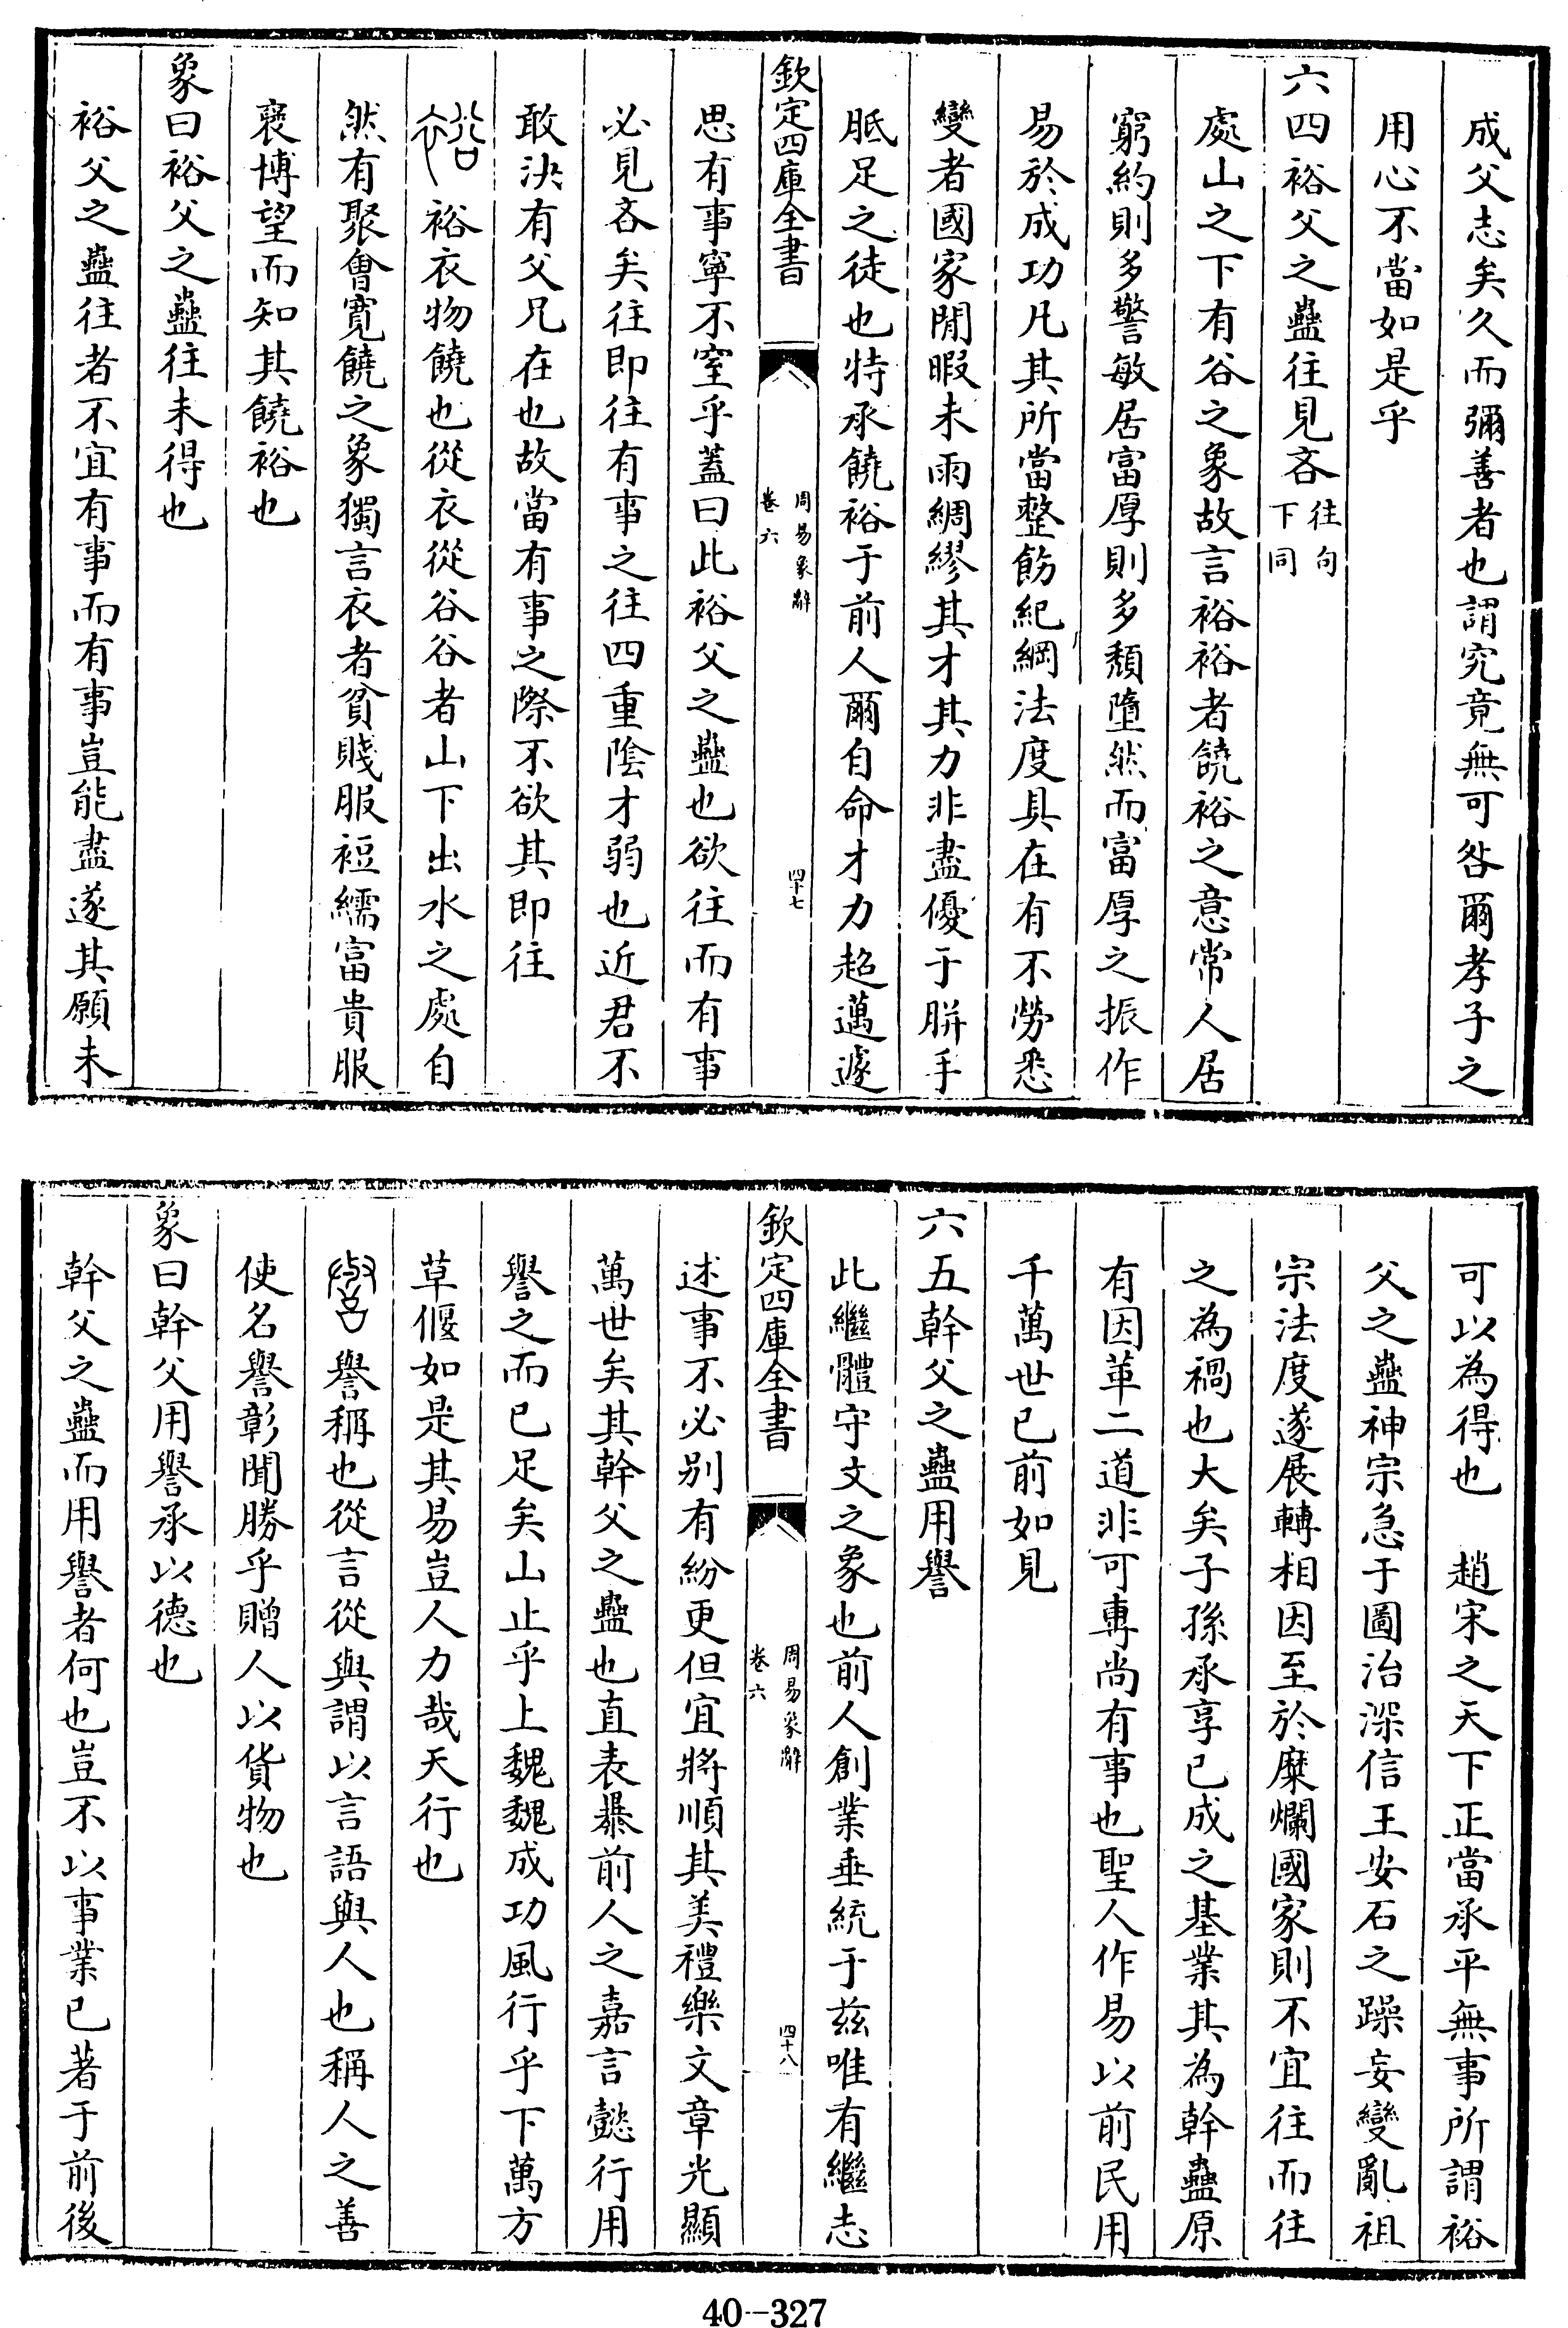 成父志矣久而彌善者也謂究竟無可咎爾孝子之
用心不當如是乎
六四裕父之蠱往見吝往句下同
處山之下有谷之象故言裕裕者饒裕之意常人居
窮約則多警敏居富厚則多頹墮然而富厚之振作
易於成功凡其所當整飭紀綱法度具在有不勞悉
變者國家閒暇未雨綢繆其才其力非盡優于胼手
胝足之徒也特承饒裕于前人爾自命才力超邁遽
欽定四庫全書
周易象辭
卷六
四十七
思有事寧不窒乎蓋曰此裕父之蠱也欲往而有事
必見吝矣往即往有事之往四重陰才弱也近君不
敢決有父兄在也故當有事之際不欲其即往
裕衣物饒也從衣從谷谷者山下出水之處自
然有聚會寬饒之象獨言衣者貧賤服裋繻富貴服
襃博望而知其饒裕也
象曰裕父之蠱往未得也
裕父之蠱往者不宜有事而有事豈能盡遂其願未
可以為得也　趙宋之天下正當承平無事所謂裕
父之蠱神宗急于圖治深信王安石之躁妄變亂祖
宗法度遂展轉相因至於糜爛國家則不宜往而往
之為禍也大矣子孫承享已成之基業其為幹蠱原
有因革二道非可專尚有事也聖人作易以前民用
千萬世已前如見
六五幹父之蠱用譽
此繼體守文之象也前人創業垂統于兹唯有繼志
欽定四庫全書
周易象辭
卷六
四十八
述事不必別有紛更但宜將順其美禮樂文章光顯
萬世矣其幹父之蠱也直表暴前人之嘉言懿行用
譽之而已足矣山止乎上魏魏成功風行乎下萬方
草偃如是其易豈人力哉天行也
譽稱也從言從與謂以言語與人也稱人之善
使名譽彰聞勝乎贈人以貨物也
象曰幹父用譽承以德也
幹父之蠱而用譽者何也豈不以事業已著于前後
40-327